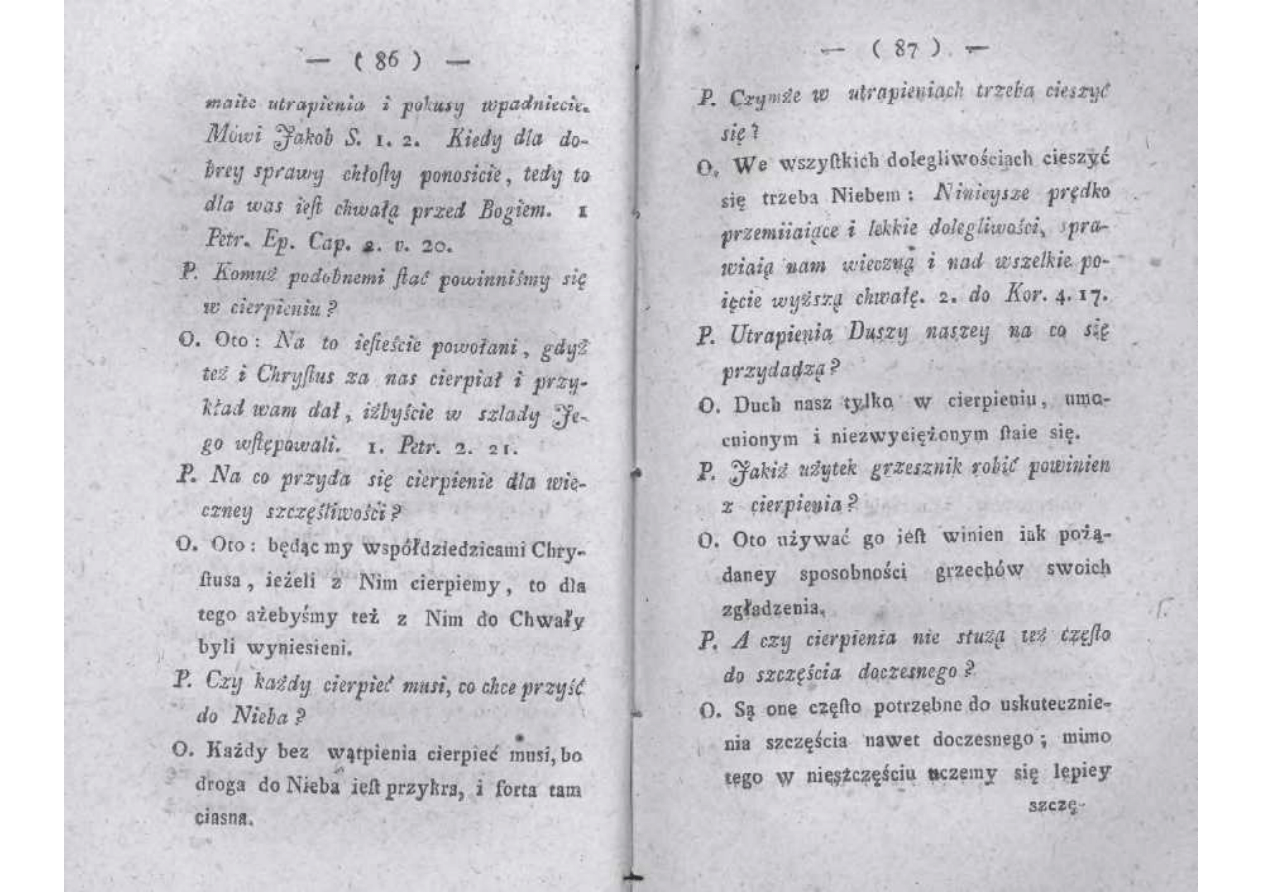 — ( 86 ) —
maite utrapienia i pokusy wpadniecie.
Mówi Jakob S. 1. 2. Kiedy dla do-
brey sprawy chłosty ponosicie, tedy to
dla was iest chwałą przed Bogiem. 1
Petr. Ep. Cap. 2. v. 20.
P. Komuż podobnemi stać powinniśmy się
w cierpieniu?
O. Oto: Na to iesteście powołani, gdyż
też i Chrystus za nas cierpiał i przy-
kład wam dał, iżbyście w szlady Je-
go wstępowali. 1. Petr. 2. 21.
P. Na co przyda się cierpienie dla wie-
czney szczęśliwości?
O. Oto: będąc my współdziedzicami Chry-
stusa, ieżeli z Nim cierpiemy, to dla
tego ażebyśmy też z Nim do Chwały
byli wyniesieni.
P. Czy każdy cierpieć musi, co chce przyść
do Nieba?
O. Każdy bez wątpienia cierpieć musi, bo
droga do Nieba iest przykra, i forta tam
ciasna.
— ( 87 ) —
P. Czymże w utrapieniach trzeba cieszyć
się?
O. We wszystkich dolegliwościach cieszyć
się trzeba Niebem: Ninieysze prędko
przemiiaiące i lekkie dolegliwości, spra-
wiaią nam wieczną i nad wszelkie po-
ięcie wyższą chwałę. 2. do Kor. 4. 17.
P. Utrapienia Duszy naszey na co się
przydadzą?
O. Duch nasz tylko w cierpieniu, umo-
cnionym i niezwyciężonym staie się.
P. Jakiż użytek grzesznik robić powinien
z cierpienia?
O. Oto używać go iest winien iak pożą-
daney sposobności grzechów swoich
zgładzenia.
P. A czy cierpienia nie służą też często
do szczęścia doczesnego?
O. Są one często potrzebne do uskutecznie-
nia szczęścia nawet doczesnego; mimo
tego w nieszczęściu uczemy się lepiey
szczę-